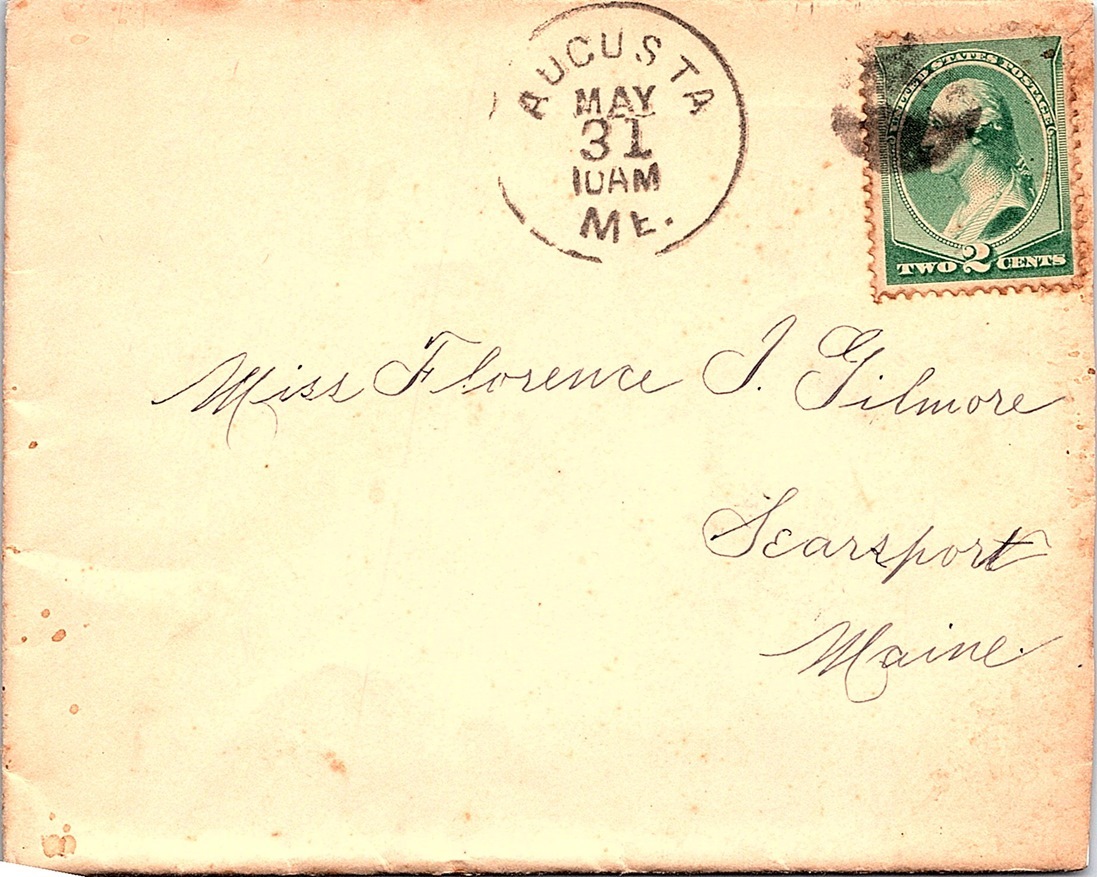 AUGUSTA
MAY
31
10AM
ME.
UNITED STATES POSTAGE
TWO 2 CENTS
Miss Florence I. Gilmore
Searsport
Maine.